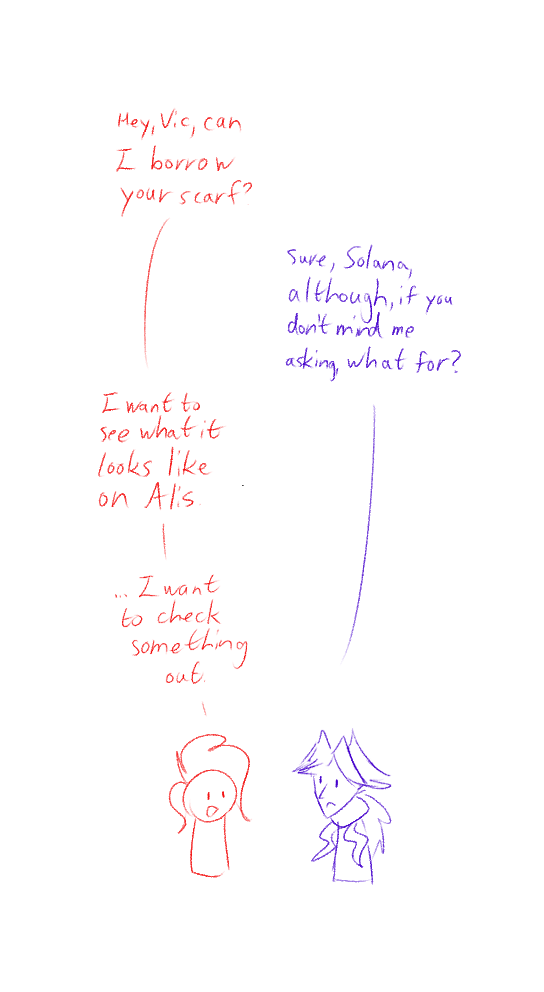 Hey, Vic, can
I borrow
your scarf?
Sure, Solana,
although, if you
don't mind me
asking, what for?
I want to
see what it
looks like
on Alis
... I want
to check
something
out.